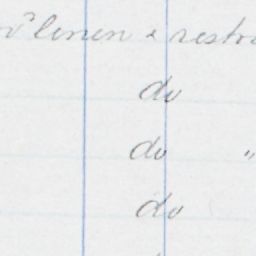 linen & restr
do
do "
do